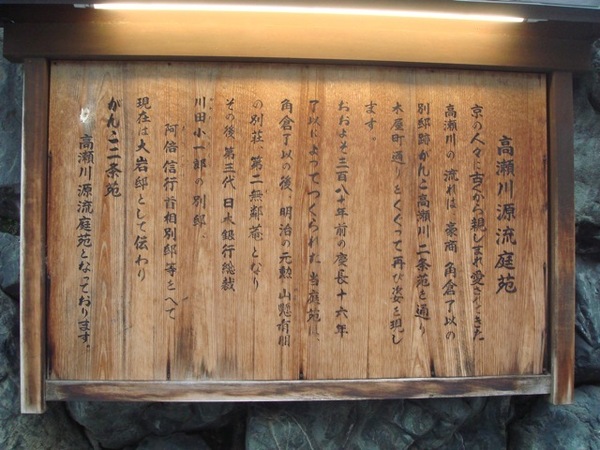 高瀬川源流庭苑
京の人々に古くから親しまれ愛されてきた
高瀬川の流れは、豪商 角倉了以の
別邸跡がんこ高瀬川二条苑を通り
木屋町通りをくぐって再び姿を現し
ます。
おおよそ三百八十年前の慶長十六年
了以によってつくられた当庭苑は、
角倉了以の後、明治の元勲 山縣有朋
の別荘 第二無鄰菴となり
その後 第三代日本銀行総裁
川田小一郎の別邸、
阿倍信行首相別邸等をへて
現在は大岩邸として伝わり
がんこ二条苑
高瀬川源流庭苑となっております。